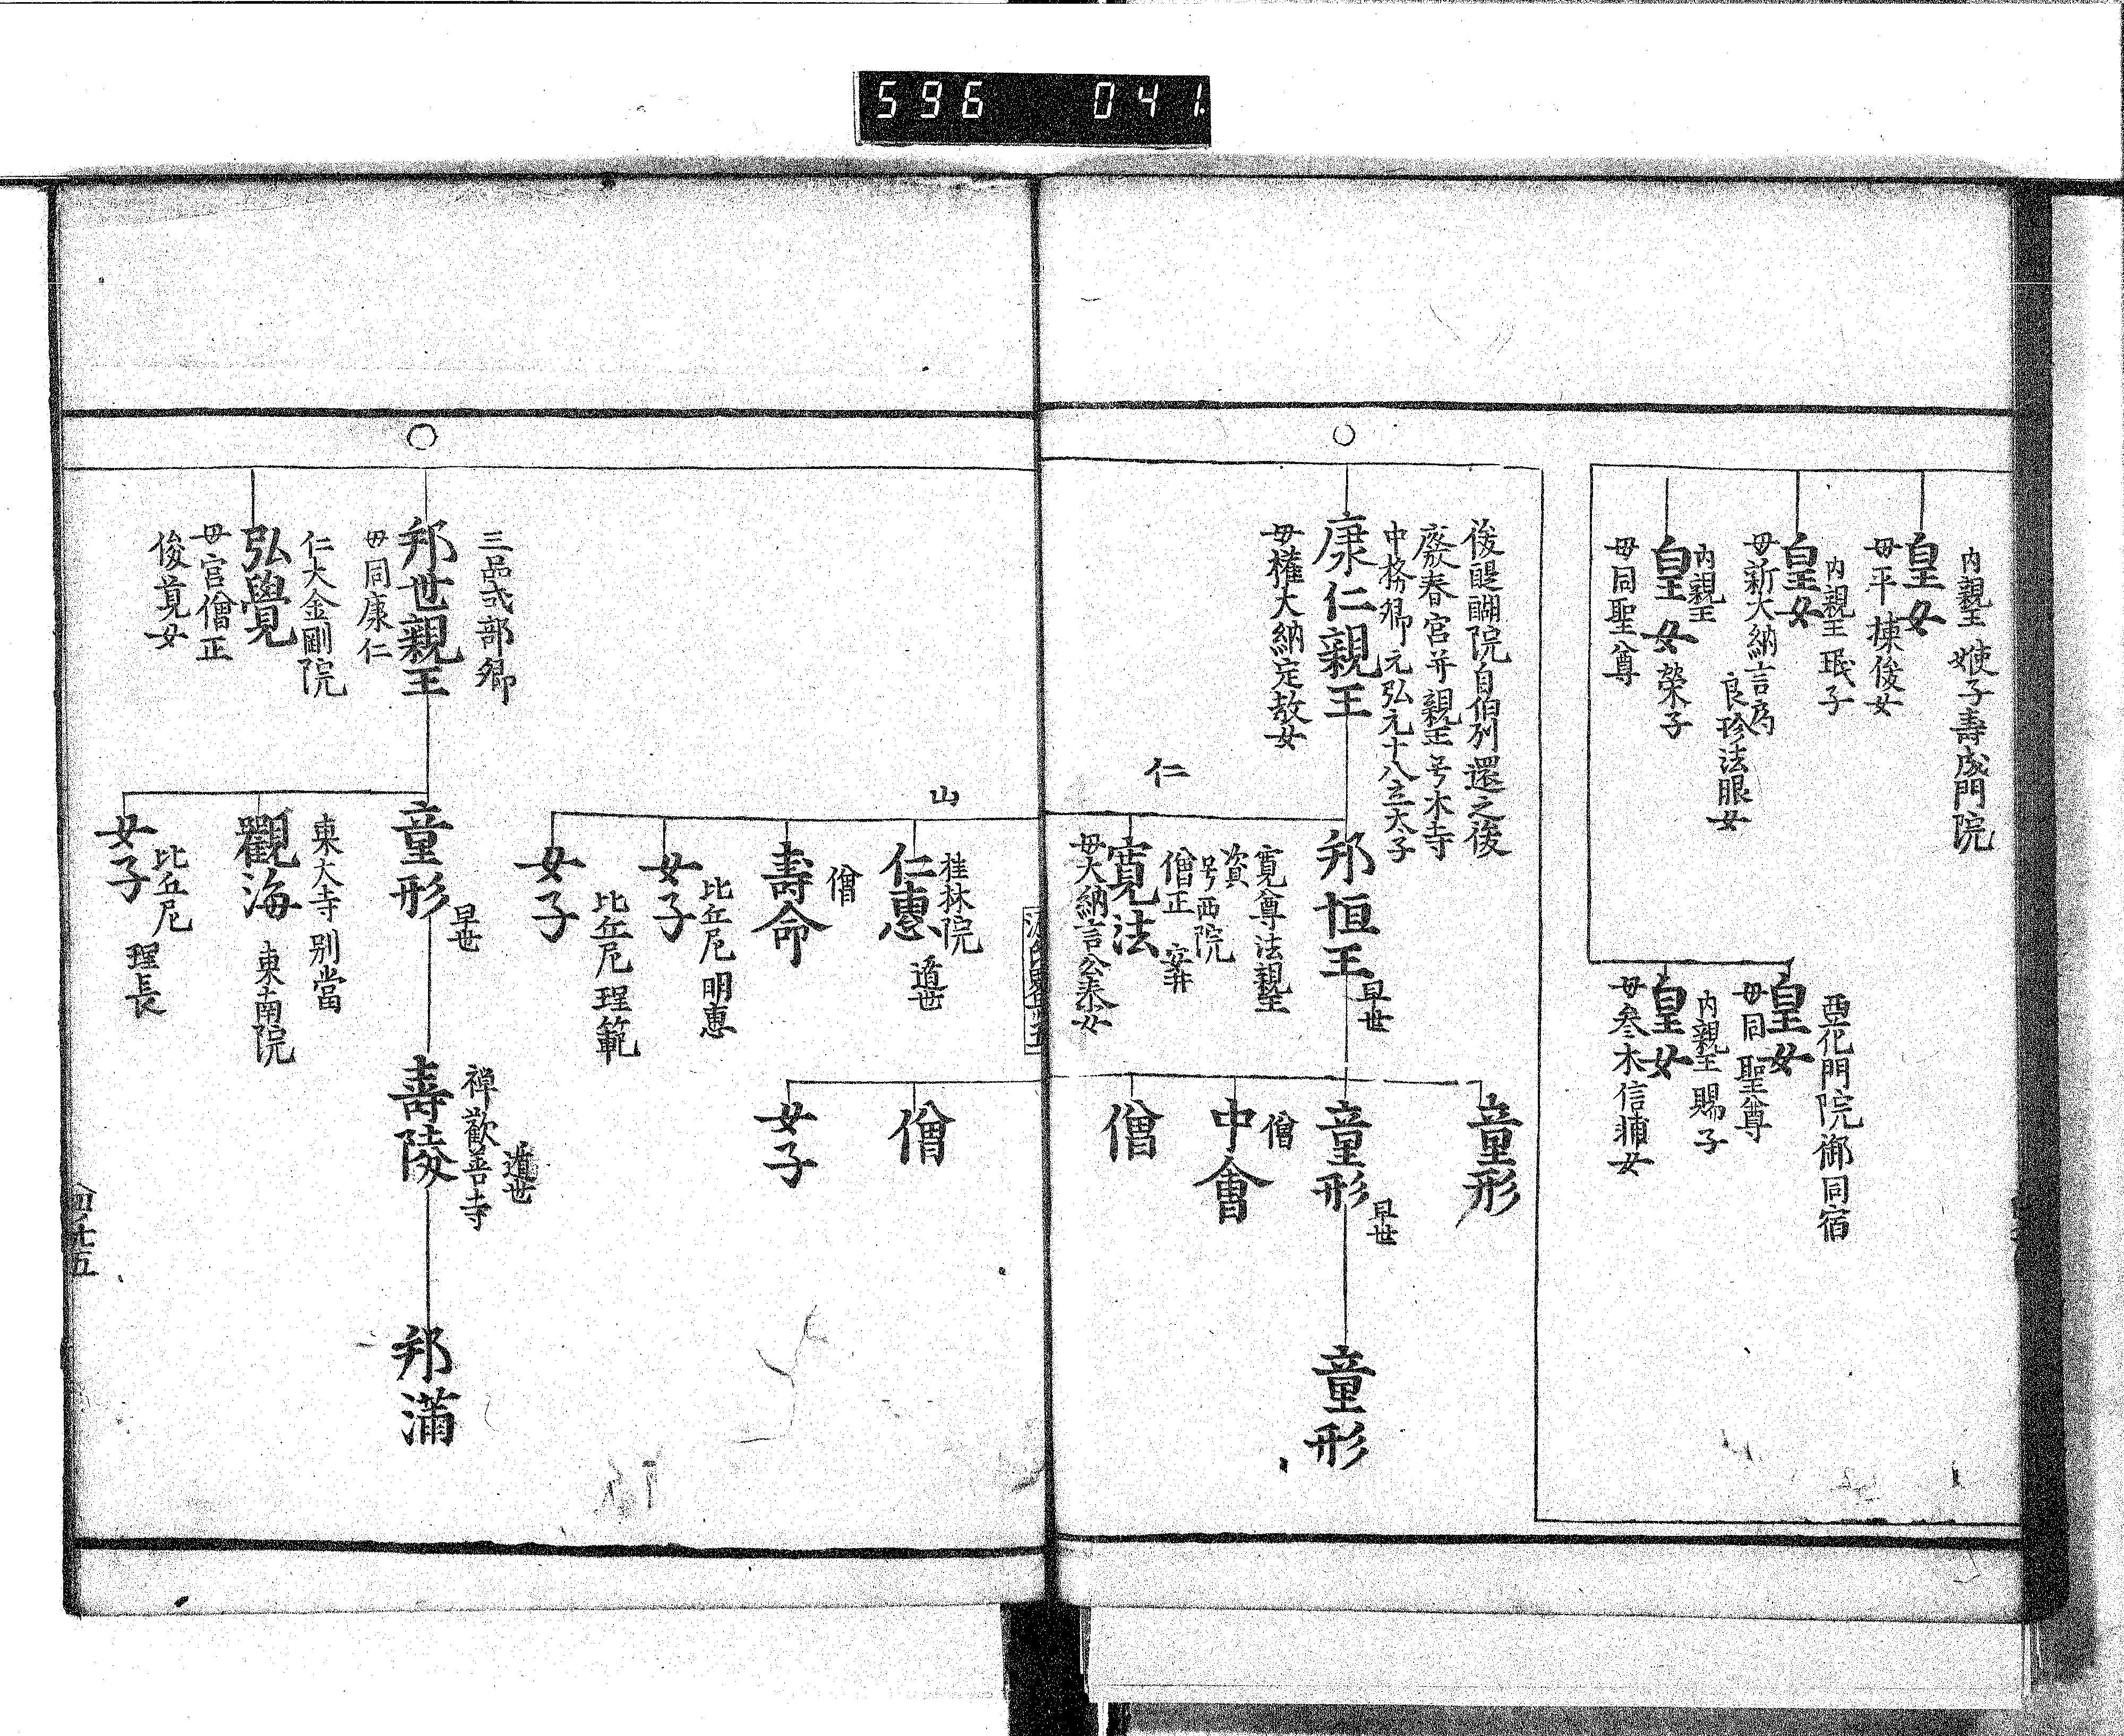 596 041
内親王 㛐子壽成門院
皇女
母平棟俊女
内親王 珉子
皇女
母新大納言局
良珍法眼女
内親王
皇女 榮子
母同聖尊
西花門院御同宿
皇女
母同聖尊
内親王 賜子
皇女
母叅木信輔女
後醍醐院自伯列還之後
廢春宮并親王号木寺
中務卿元弘元十八立太子
康仁親王
母權大納定敖女
邦恒王 早世
仁
寛尊法親王
資
号西院
僧正
寛法
母大納言公泰女
童形
童形 早世
童形
僧
中會
僧
山
桂林院
仁惠 遁世
僧
壽命
比丘尼 明惠
女子
比丘尼 理範
女子
僧
女子
三品式部卿
邦世親王
母同康仁
童形 早世
禅歡善寺
遁世
壽陵
邦満
東大寺別當
觀海 東南院
比丘尼
女子 理長
仁大金剛院
弘覺
母官僧正
俊覚女
四ノ七五